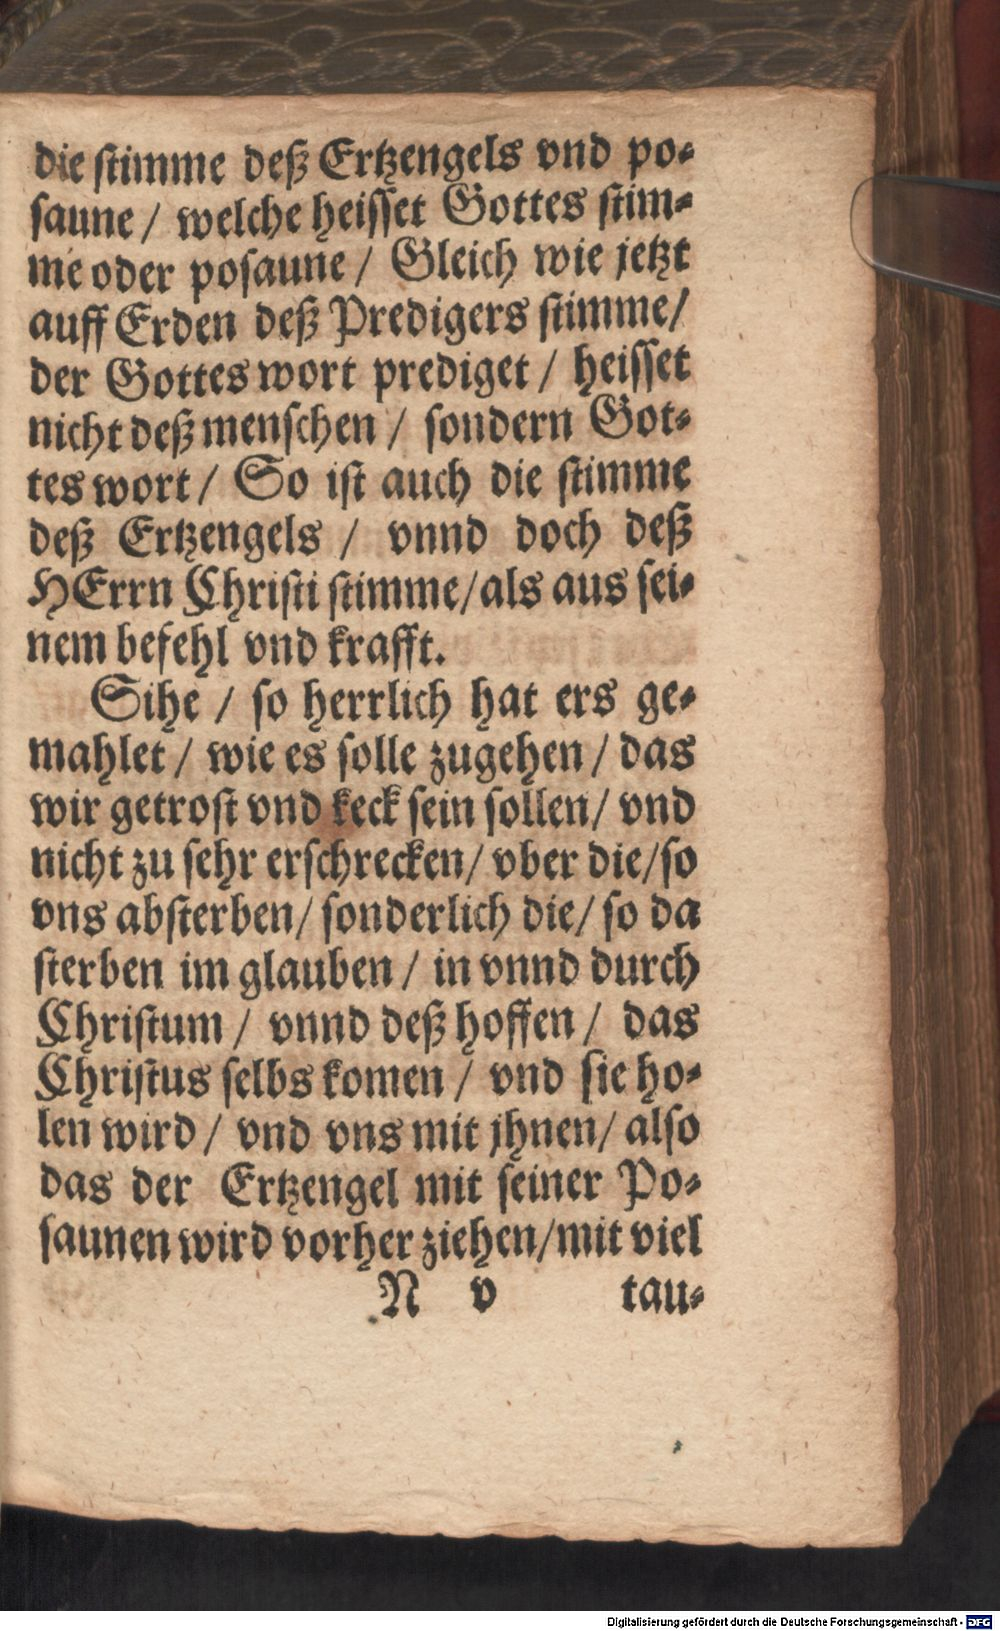 die stimme deß Ertzengels vnd po-
saune / welche heisset Gottes stim-
me oder posaune / Gleich wie jetzt
auff Erden deß Predigers stimme/
der Gottes wort prediget / heisset
nicht deß menschen / sondern Got-
tes wort / So ist auch die stimme
deß Ertzengels / vnnd doch deß
HErrn Christi stimme/als aus sei-
nem befehl vnd krafft.
Sihe / so herrlich hat ers ge-
mahlet / wie es solle zugehen / das
wir getrost vnd keck sein sollen/ vnd
nicht zu sehr erschrecken/ vber die/so
vns absterben/ sonderlich die/ so da
sterben im glauben / in vnnd durch
Christum / vnnd deß hoffen / das
Christus selbs komen / vnd sie ho-
len wird / vnd vns mit jhnen/ also
das der Ertzengel mit seiner Po-
saunen wird vorher ziehen/mit viel
N v tau-
Digitalisierung gefördert durch die Deutsche Forschungsgemeinschaft - DFG